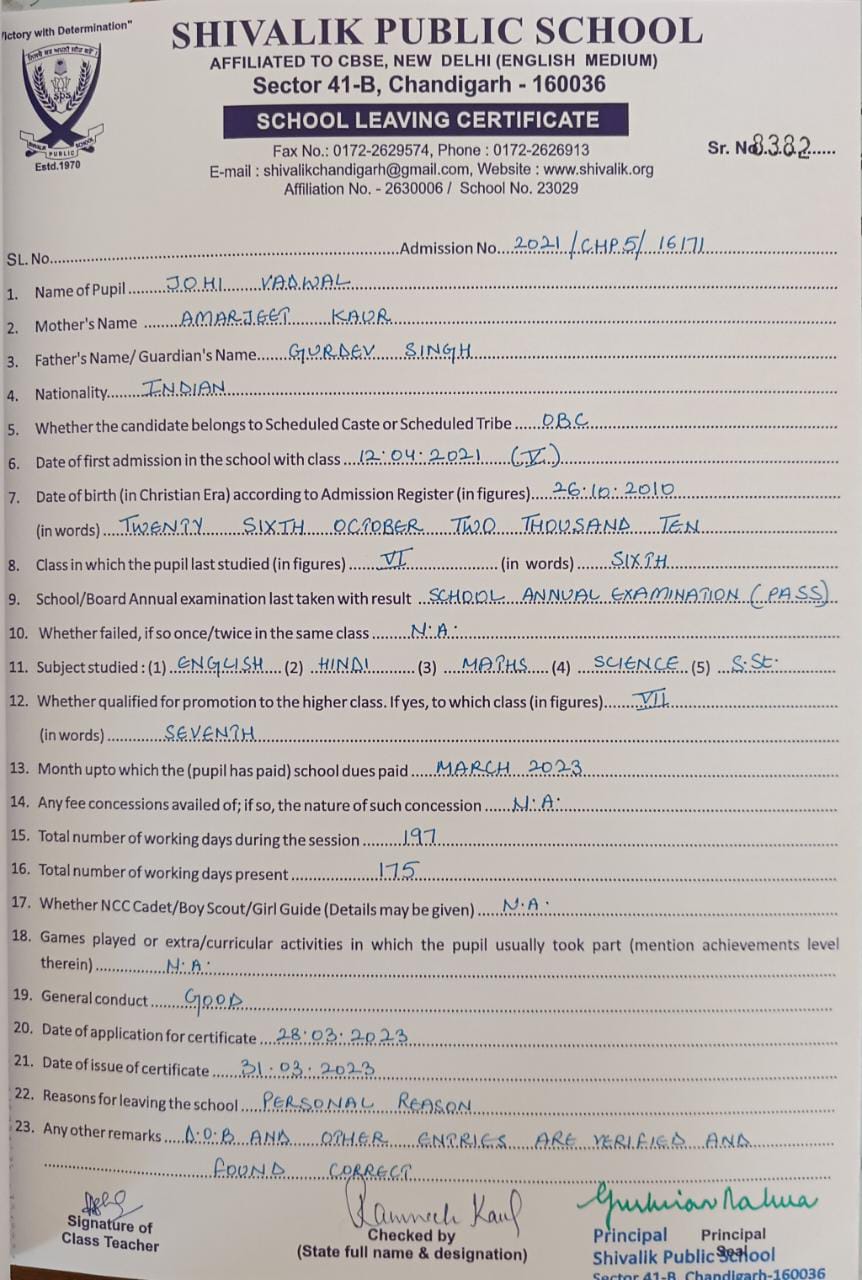 "Victory with Determination"
SHIVALIK PUBLIC SCHOOL
AFFILIATED TO CBSE, NEW DELHI (ENGLISH MEDIUM)
Sector 41-B, Chandigarh - 160036
SCHOOL LEAVING CERTIFICATE
SPS
SHIVALIK PUBLIC SCHOOL
Estd.1970
Fax No.: 0172-2629574, Phone : 0172-2626913
E-mail : shivalikchandigarh@gmail.com, Website : www.shivalik.org
Affiliation No. - 2630006 / School No. 23029
Sr. No. 8382
SL. No. Admission No. 2021/CHP5/16171
1. Name of Pupil JOHI VADWAL
2. Mother's Name AMARJEET KAUR
3. Father's Name/ Guardian's Name GURDEV SINGH
4. Nationality INDIAN
5. Whether the candidate belongs to Scheduled Caste or Scheduled Tribe OBC
6. Date of first admission in the school with class 12.04.2021 (V)
7. Date of birth (in Christian Era) according to Admission Register (in figures) 26.10.2010
(in words) TWENTY SIXTH OCTOBER TWO THOUSAND TEN
8. Class in which the pupil last studied (in figures) VI (in words) SIXTH
9. School/Board Annual examination last taken with result SCHOOL ANNUAL EXAMINATION (PASS)
10. Whether failed, if so once/twice in the same class N.A.
11. Subject studied : (1) ENGLISH (2) HINDI (3) MATHS (4) SCIENCE (5) S.St.
12. Whether qualified for promotion to the higher class. If yes, to which class (in figures) VII
(in words) SEVENTH
13. Month upto which the (pupil has paid) school dues paid MARCH 2023
14. Any fee concessions availed of; if so, the nature of such concession N.A.
15. Total number of working days during the session 197
16. Total number of working days present 175
17. Whether NCC Cadet/Boy Scout/Girl Guide (Details may be given) N.A.
18. Games played or extra/curricular activities in which the pupil usually took part (mention achievements level
therein) N.A.
19. General conduct GOOD
20. Date of application for certificate 28.03.2023
21. Date of issue of certificate 31.03.2023
22. Reasons for leaving the school PERSONAL REASON
23. Any other remarks D.O.B AND OTHER ENTRIES ARE VERIFIED AND
FOUND CORRECT
Signature of
Class Teacher
Checked by
(State full name & designation)
Principal
Seal
Principal
Shivalik Public School
Sector 41-B, Chandigarh-160036